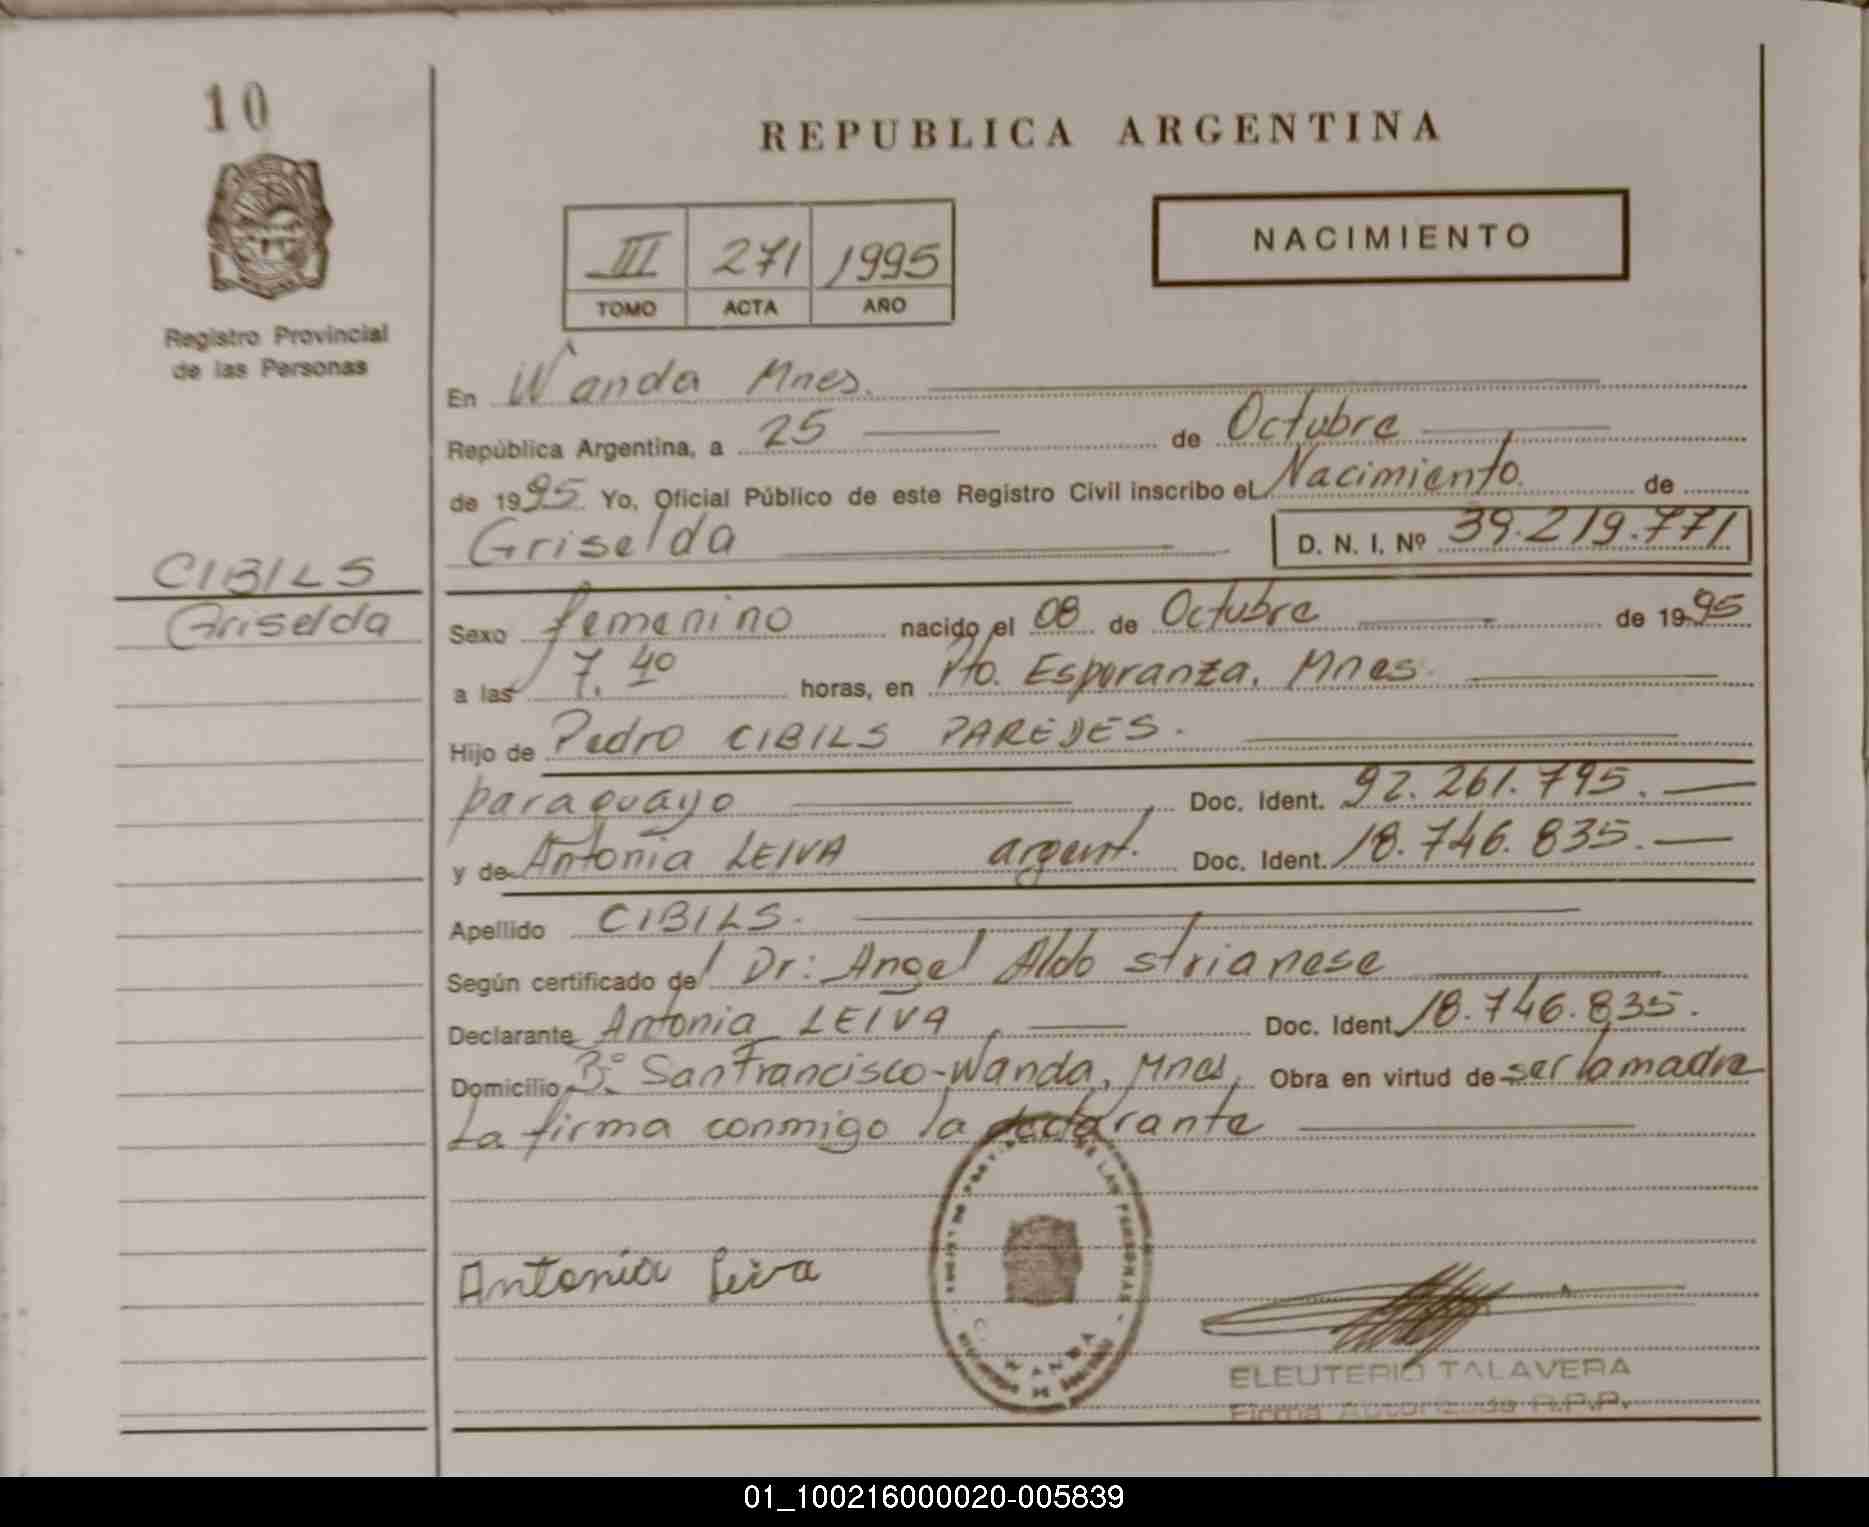 10
REPUBLICA ARGENTINA
NACIMIENTO
III 271 1995
TOMO ACTA AÑO
Registro Provincial
de las Personas
En Wanda Mnes.
República Argentina, a 25 de Octubre
de 1995. Yo, Oficial Público de este Registro Civil inscribo el Nacimiento de
Griselda D. N. I. Nº 39.219.771
CIBILS
Griselda
Sexo femenino nacido el 08 de Octubre de 1995
a las 7.40 horas, en Pto. Esperanza, Mnes.
Hijo de Pedro CIBILS PAREDES.
paraguayo Doc. Ident. 92.261.795.
y de Antonia LEIVA argent. Doc. Ident. 18.746.835.
Apellido CIBILS.
Según certificado del Dr: Angel Aldo strianese
Declarante Antonia LEIVA, Doc. Ident. 18.746.835.
Domicilio Bº San Francisco-Wanda, Mnes, Obra en virtud de ser la madre
La firma conmigo la declarante
Antonia Leiva
WANDA
ELEUTERIO TALAVERA
Firma Autorizada R.P.P.
01_100216000020-005839